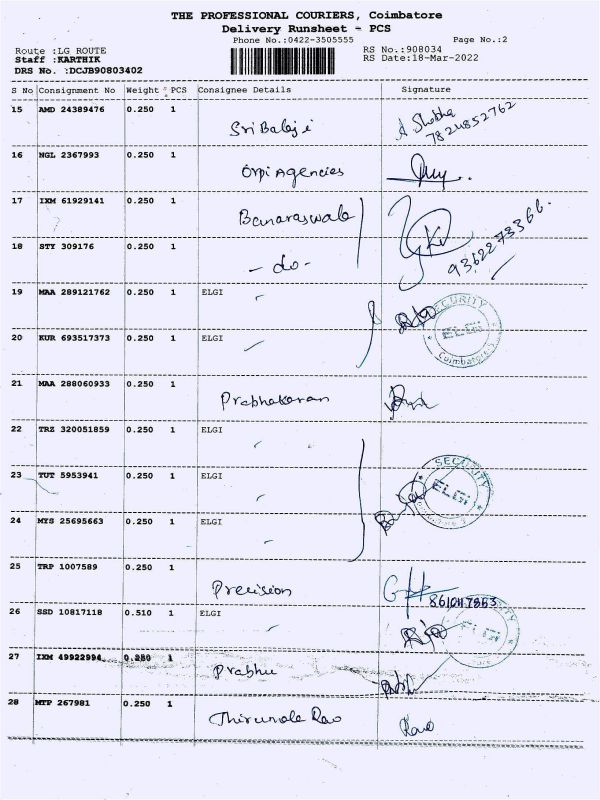 THE PROFESSIONAL COURIERS, Coimbatore
Delivery Runsheet - PCS
Phone No.:0422-3505555 Page No.:2
Route :LG ROUTE RS No.:908034
Staff :KARTHIK RS Date:18-Mar-2022
DRS No. :DCJB90803402
S No Consignment No Weight PCS Consignee Details Signature
15 AMD 24389476 0.250 1 Sri Balaji A Shobha
7824852762
16 NGL 2367993 0.250 1 Orpi Agencies
17 IXM 61929141 0.250 1 Banaraswala
18 STY 309176 0.250 1 - do - 9362273366.
19 MAA 289121762 0.250 1 ELGI SECURITY ELGI Coimbatore-5
20 KUR 693517373 0.250 1 ELGI
21 MAA 288060933 0.250 1 Prabhakaran
22 TRZ 320051859 0.250 1 ELGI
23 TUT 5953941 0.250 1 ELGI SECURITY ELGI
24 MYS 25695663 0.250 1 ELGI
25 TRP 1007589 0.250 1 Precision
26 SSD 10817118 0.510 1 ELGI ELGI
27 IXM 49922994 0.250 1 Prabhu
28 MTP 267981 0.250 1 Thirumala Rao Rao